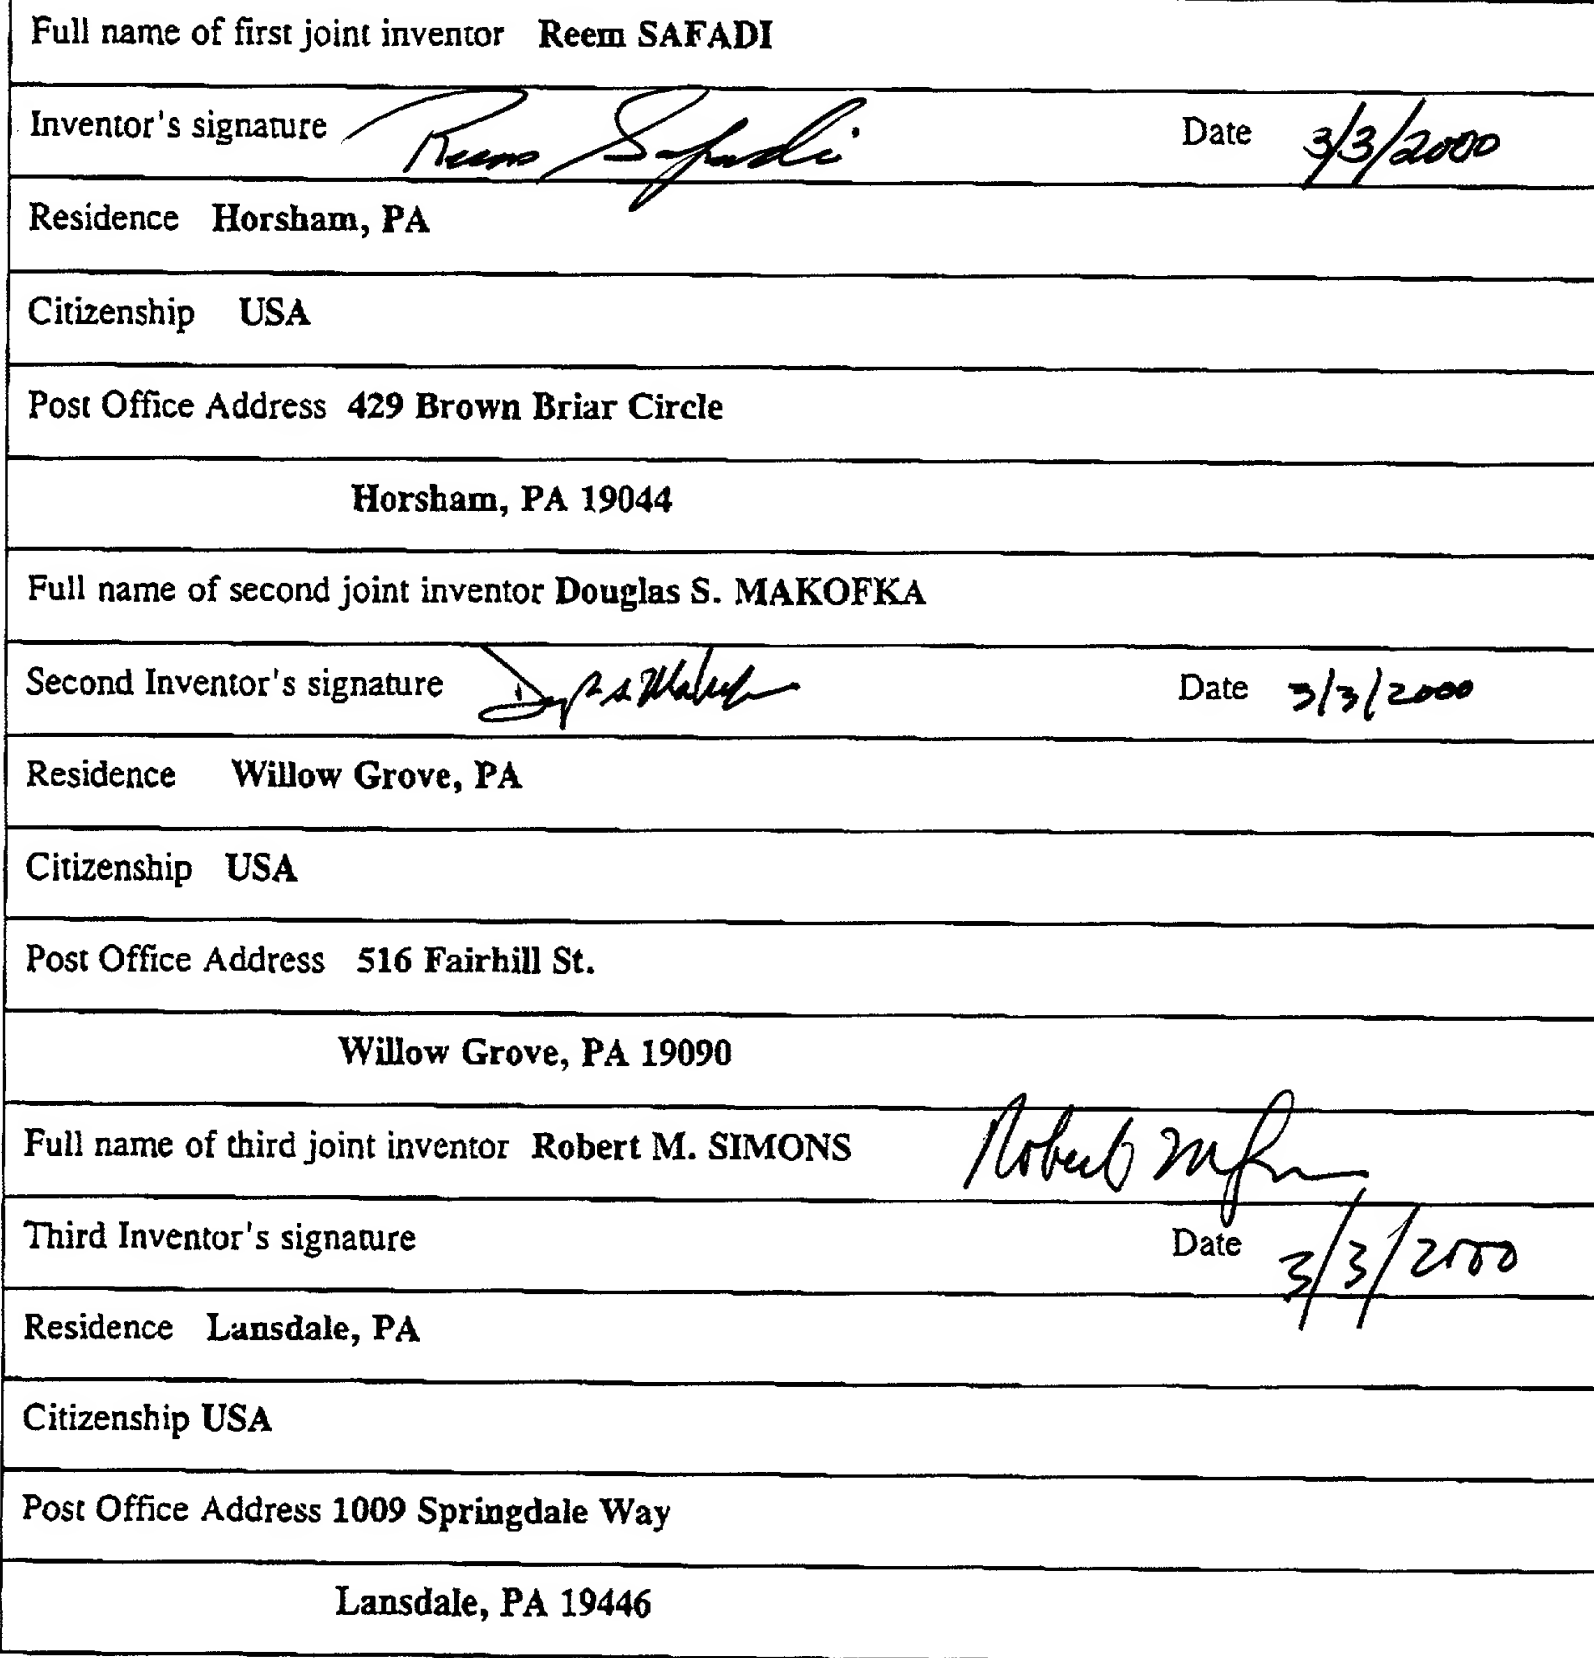 Full name of first joint inventor Reem SAFADI
Inventor's signature Reem Safadi Date 3/3/2000
Residence Horsham, PA
Citizenship USA
Post Office Address 429 Brown Briar Circle
Horsham, PA 19044
Full name of second joint inventor Douglas S. MAKOFKA
Second Inventor's signature Date 3/3/2000
Residence Willow Grove, PA
Citizenship USA
Post Office Address 516 Fairhill St.
Willow Grove, PA 19090
Full name of third joint inventor Robert M. SIMONS Robert M
Third Inventor's signature Date 3/3/2000
Residence Lansdale, PA
Citizenship USA
Post Office Address 1009 Springdale Way
Lansdale, PA 19446